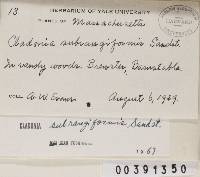 13 HERBARIUM OF YALE UNIVERSITY
PLANTS OF Massachusetts
Cladonia subrangiformis Sandst.
In sandy woods. Brewster, Barnstable
A. W. Evans August 6, 1929.
CLADONIA subrangiformis Sandst.
1967
00391350